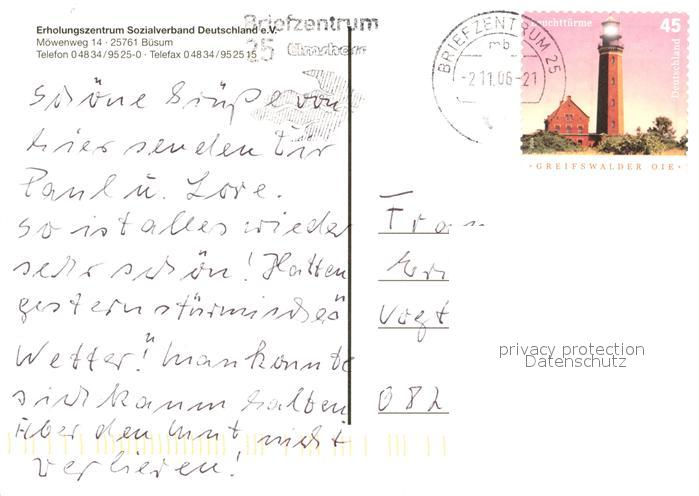 Erholungszentrum Sozialverband Deutschland e.V.
Möwenweg 14 · 25761 Büsum
Telefon 0 48 34 / 95 25-0 · Telefax 0 48 34 / 95 25 15
Briefzentrum
25 Elmshorn
BRIEFZENTRUM 25
mb
-2.11.06-21
Leuchttürme
45
Deutschland
· GREIFSWALDER OIE ·
Schöne Grüße von
hier senden Dir
Paul u. Lore.
So ist alles wieder
sehr schön! Hatten
gestern stürmisches
Wetter! Man konnte
sich kaum halten
Aber den Mut nicht
verlieren!
Frau
Vogt
082
privacy protection
Datenschutz